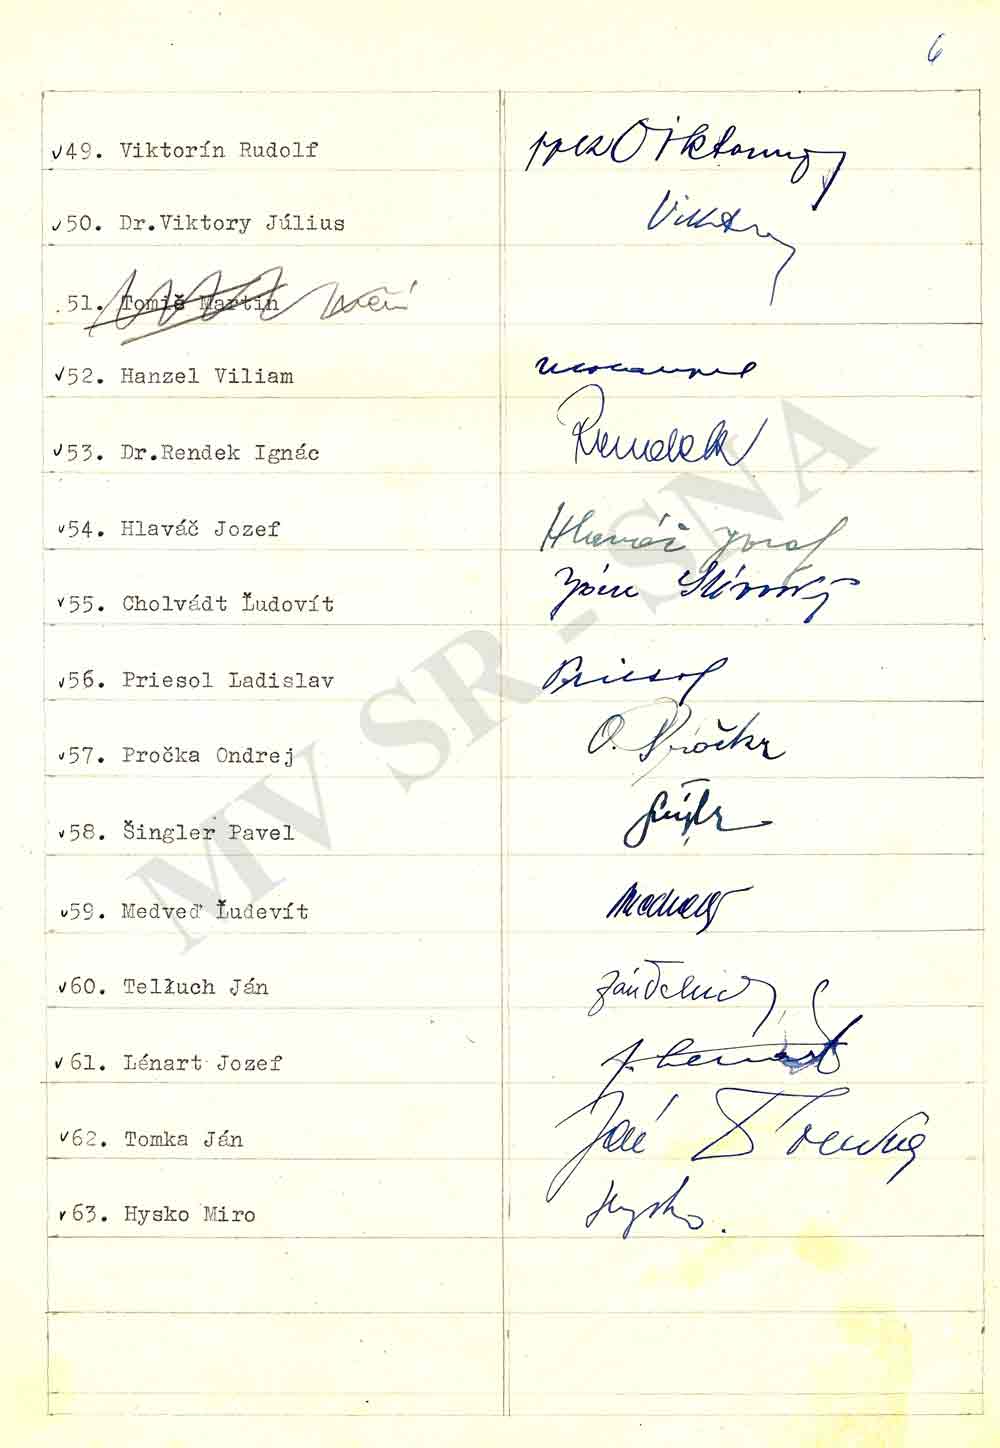 6
✓49. Viktorín Rudolf
✓50. Dr.Viktory Július
51. Tomiš Martin
✓52. Hanzel Viliam
✓53. Dr.Rendek Ignác Rendek
✓54. Hlaváč Jozef Hlaváč Jozef
✓55. Cholvádt Ľudovít
✓56. Priesol Ladislav Priesol
✓57. Pročka Ondrej O. Pročka
✓58. Šingler Pavel
✓59. Medveď Ľudevít
✓60. Telluch Ján
✓61. Lénart Jozef J. Lenárt
✓62. Tomka Ján
✓63. Hysko Miro Hysko.
MV SR - SNA